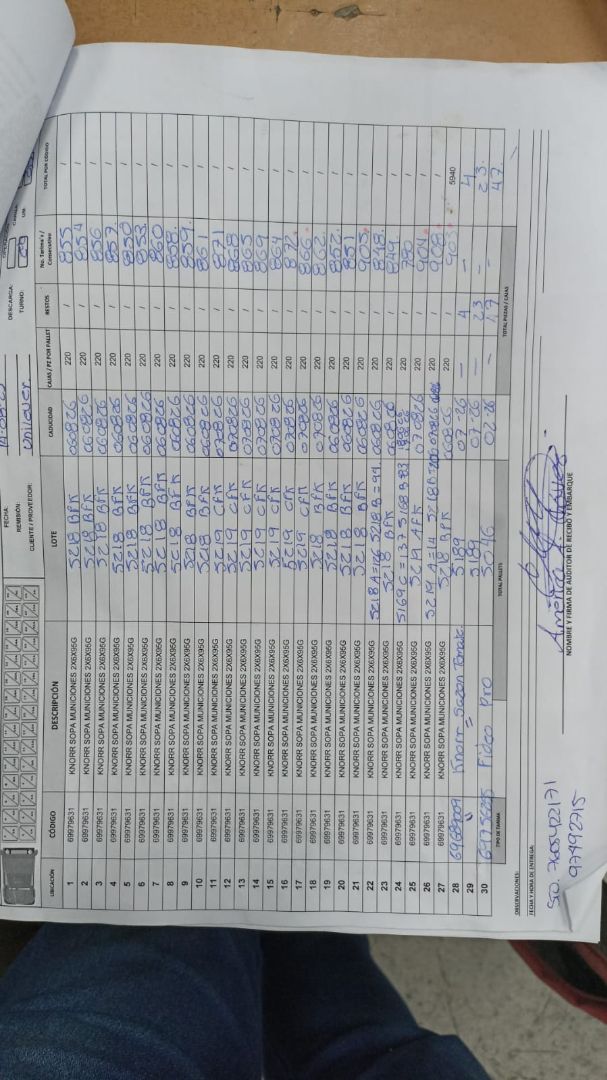 FECHA:
REMISIÓN:
CLIENTE / PROVEEDOR: Unilever.
DESCARGA:
TURNO:
UBICACIÓN CÓDIGO DESCRIPCIÓN LOTE CADUCIDAD CAJAS / PZ POR PALLET RESTOS No. Tarima's / Consecutivo TOTAL POR CÓDIGO
1 69979631 KNORR SOPA MUNICIONES 2X6X95G 5218 BPK 060826 220 / 855 /
2 69979631 KNORR SOPA MUNICIONES 2X6X95G 5218 BPK 060826 220 / 854 /
3 69979631 KNORR SOPA MUNICIONES 2X6X95G 5218 BPK 060826 220 / 856 /
4 69979631 KNORR SOPA MUNICIONES 2X6X95G 5218 BPK 060826 220 / 857 /
5 69979631 KNORR SOPA MUNICIONES 2X6X95G 5218 BPK 060826 220 / 850 /
6 69979631 KNORR SOPA MUNICIONES 2X6X95G 5218 BPK 060826 220 / 853 /
7 69979631 KNORR SOPA MUNICIONES 2X6X95G 5218 BPK 060826 220 / 860 /
8 69979631 KNORR SOPA MUNICIONES 2X6X95G 5218 BPK 060826 220 / 858 /
9 69979631 KNORR SOPA MUNICIONES 2X6X95G 5218 BPK 060826 220 / 859 /
10 69979631 KNORR SOPA MUNICIONES 2X6X95G 5218 BPK 060826 220 / 861 /
11 69979631 KNORR SOPA MUNICIONES 2X6X95G 5219 CPK 070826 220 / 871 /
12 69979631 KNORR SOPA MUNICIONES 2X6X95G 5219 CPK 070826 220 / 868 /
13 69979631 KNORR SOPA MUNICIONES 2X6X95G 5219 CPK 070826 220 / 865 /
14 69979631 KNORR SOPA MUNICIONES 2X6X95G 5219 CPK 070826 220 / 869 /
15 69979631 KNORR SOPA MUNICIONES 2X6X95G 5219 CPK 070826 220 / 864 /
16 69979631 KNORR SOPA MUNICIONES 2X6X95G 5219 CPK 070826 220 / 872 /
17 69979631 KNORR SOPA MUNICIONES 2X6X95G 5219 CPK 070826 220 / 866 /
18 69979631 KNORR SOPA MUNICIONES 2X6X95G 5218 BPK 070826 220 / 862 /
19 69979631 KNORR SOPA MUNICIONES 2X6X95G 5218 BPK 060826 220 / 852 /
20 69979631 KNORR SOPA MUNICIONES 2X6X95G 5218 BPK 060826 220 / 851 /
21 69979631 KNORR SOPA MUNICIONES 2X6X95G 5218 BPK 060826 220 / 905 /
22 69979631 KNORR SOPA MUNICIONES 2X6X95G 5218 A=126 5218 B=94 060826 220 / 848 /
23 69979631 KNORR SOPA MUNICIONES 2X6X95G 5218 BPK 060826 220 / 849 /
24 69979631 KNORR SOPA MUNICIONES 2X6X95G 5169C=137 5168 B 83 220 / 780 /
25 69979631 KNORR SOPA MUNICIONES 2X6X95G 5219 APK 070826 220 / 904 /
26 69979631 KNORR SOPA MUNICIONES 2X6X95G 5219 A=14 5218 B 070826 220 / 908 /
27 69979631 KNORR SOPA MUNICIONES 2X6X95G 5218 BPK 060826 220 / 903 5940
28 Knorr Sazon Tomate. 5189 07.26 — 4 — 4
29 " = 5189 07.26 — 23 — 23
30 Fideo Pro 5046 02.26 — 47 — 47
TIPO DE TARIMA TOTAL PALLETS TOTAL PIEZAS / CAJAS
OBSERVACIONES:
FECHA Y HORA DE ENTREGA:
NOMBRE Y FIRMA DE AUDITOR DE RECIBO Y EMBARQUE
97992715